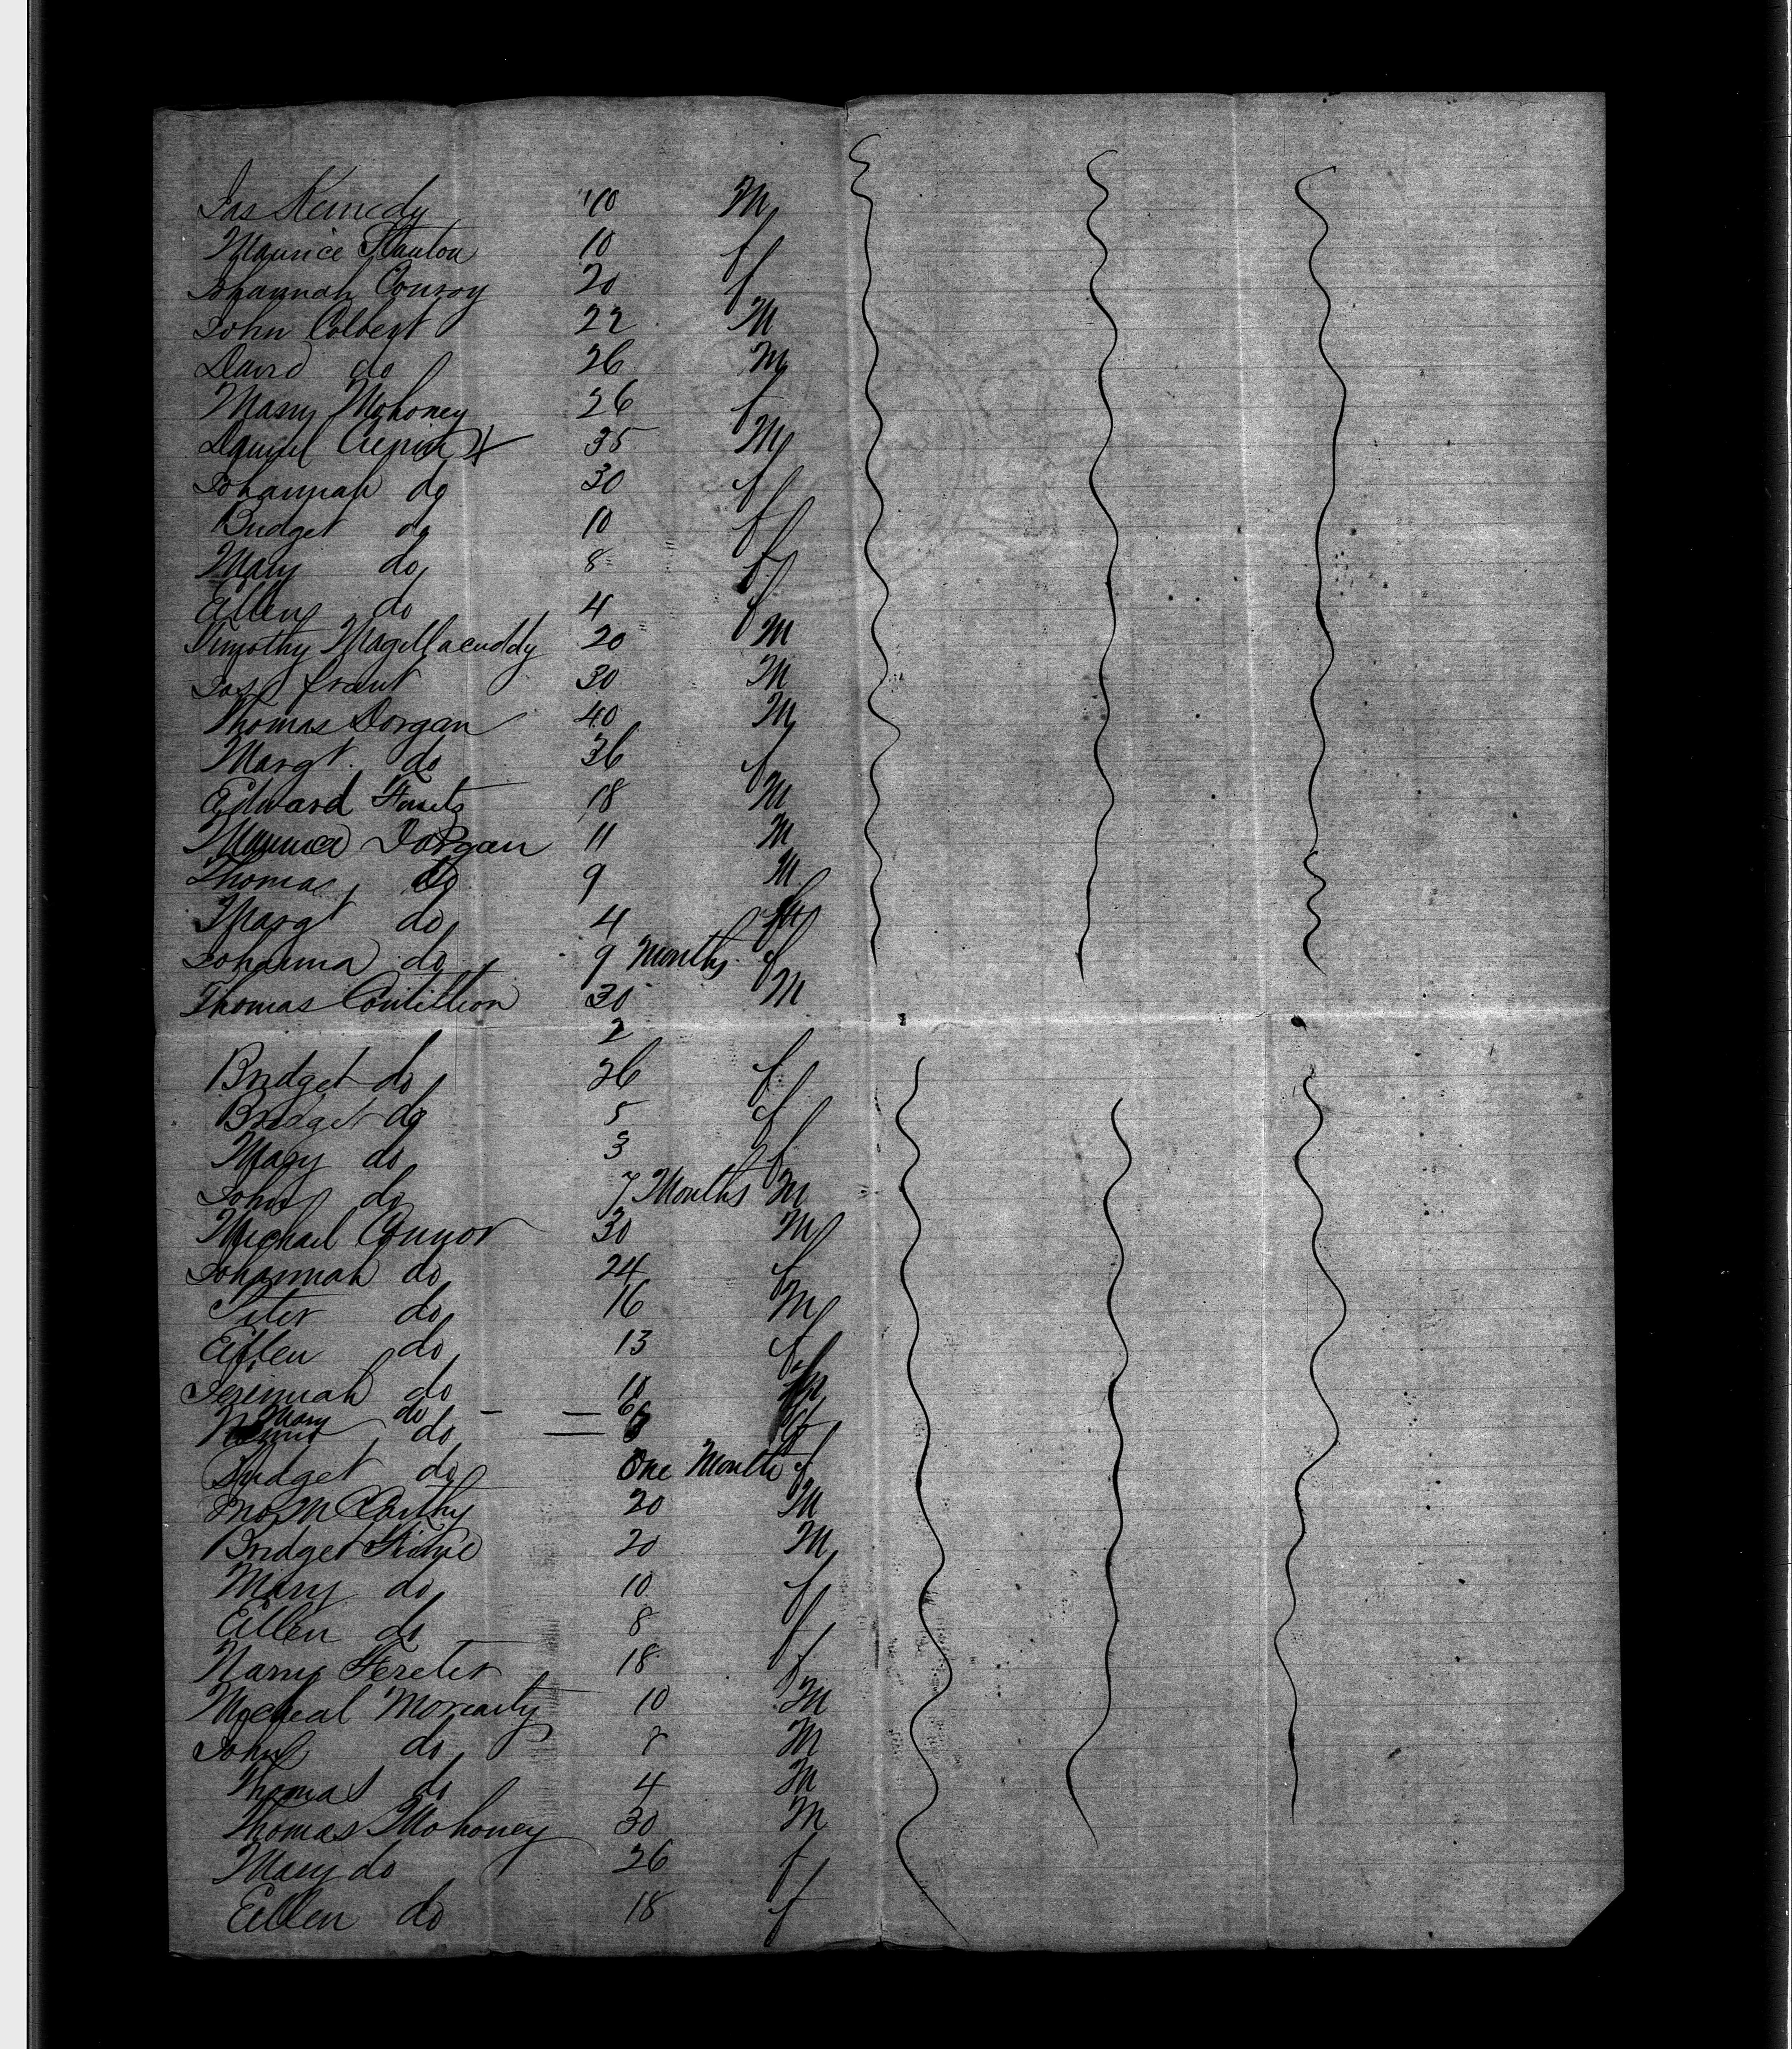 Jas Kennedy 40 M
Maurice Stanton 10 f
Johannah Conroy 20 f
John Colbert 22 M
David do 26 M
Mary Mohoney 26 f
Daniel 35 M
Johannah do 30 f
Bridget do 10 f
Mary do 8 f
Ellen do 4 f
Timothy Magillacuddy 20 M
Jas Grant 30 M
Thomas Dorgan 40 M
Margt. do 36 f
Edward 18 M
Maurice Dorgan 11 M
Thomas do 9 M
Margt do 4 f
Johanna do 9 Months f
Thomas 30 M
2
Bridget do 26 f
Bridget do 5 f
Mary do 3 f
John do 7 Months M
Michael Connor 30 M
Johannah do 24 f
Peter do 16 M
Ellen do 13 f
Jeremiah do 10 M
Mary do - = 6
do 6 f
Bridget do One Month f
Jno McCarthy 20 M
Bridget 20 M
Mary do 10 f
Ellen do 8 f
18 f
Micheal Moriarty 10 M
John do 8 M
Thomas do 4 M
Thomas Mohoney 30 M
Mary do 26 f
Ellen do 18 f